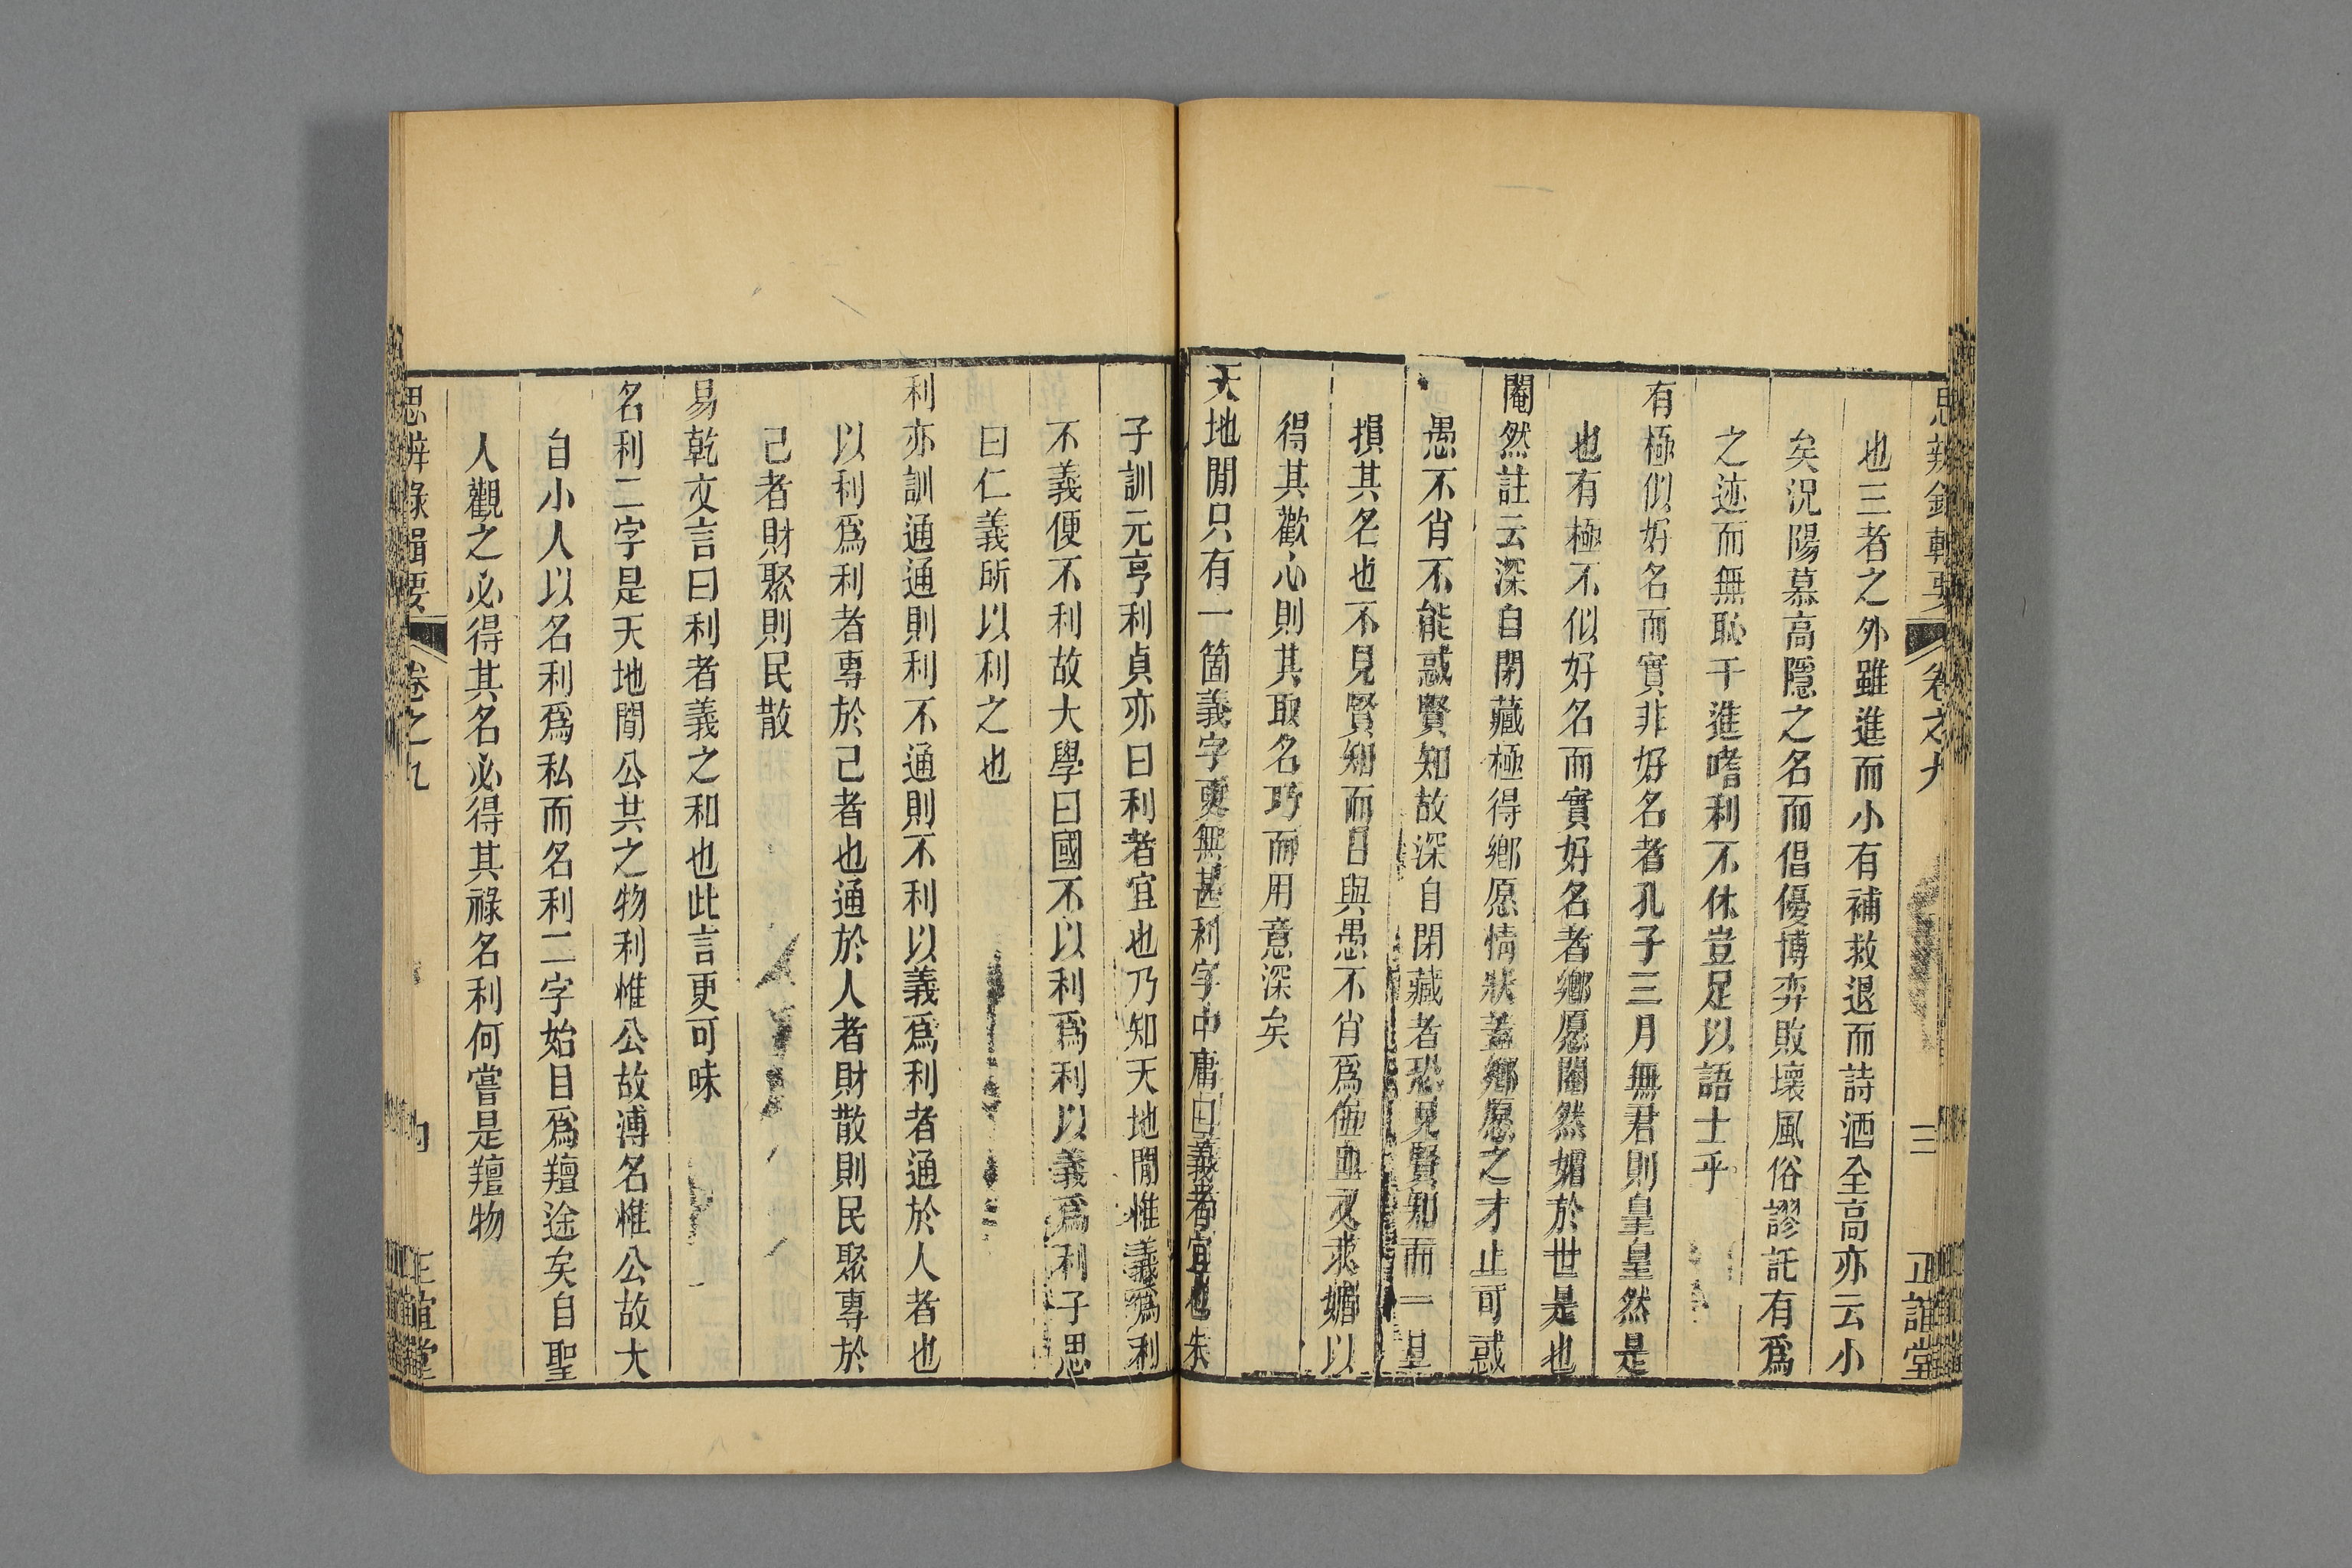 思辨錄輯要 卷之九 三 正誼堂
也三者之外雖進而小有補救退而詩酒全高亦云小
矣況陽慕高隱之名而倡優博弈敗壞風俗謬託有爲
之迹而無恥干進嗜利不休豈足以語士乎
有極似好名而實非好名者孔子三月無君則皇皇然是
也有極不似好名而實好名者鄉愿閹然媚於世是也
閹然註云深自閉藏極得鄉愿情狀蓋鄉愿之才止可惑
愚不肖不能惑賢知故深自閉藏者恐見賢知而一旦
損其名也不見賢知而日與愚不肖爲伍又求媚以
得其歡心則其取名巧而用意深矣
天地閒只有一箇義字更無甚利字中庸曰義者宜也朱
子訓元亨利貞亦曰利者宜也乃知天地閒惟義爲利
不義便不利故大學曰國不以利爲利以義爲利子思
曰仁義所以利之也
利亦訓通通則利不通則不利以義爲利者通於人者也
以利爲利者專於己者也通於人者財散則民聚專於
己者財聚則民散
易乾文言曰利者義之和也此言更可味
名利二字是天地閒公共之物利惟公故溥名惟公故大
自小人以名利爲私而名利二字始目爲羶途矣自聖
人觀之必得其名必得其祿名利何嘗是羶物
思辨錄輯要 卷之九 正誼堂